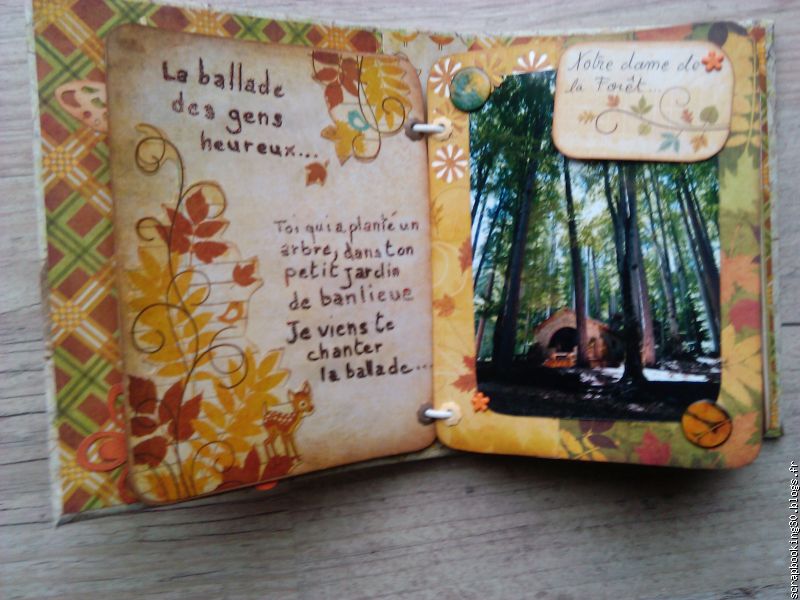 La ballade
des gens
heureux...
Toi qui a planté un
arbre, dans ton
petit jardin
de banlieue
Je viens te
chanter
la ballade...
Notre dame de
la Forêt...
scrapbooking30.blogs.fr